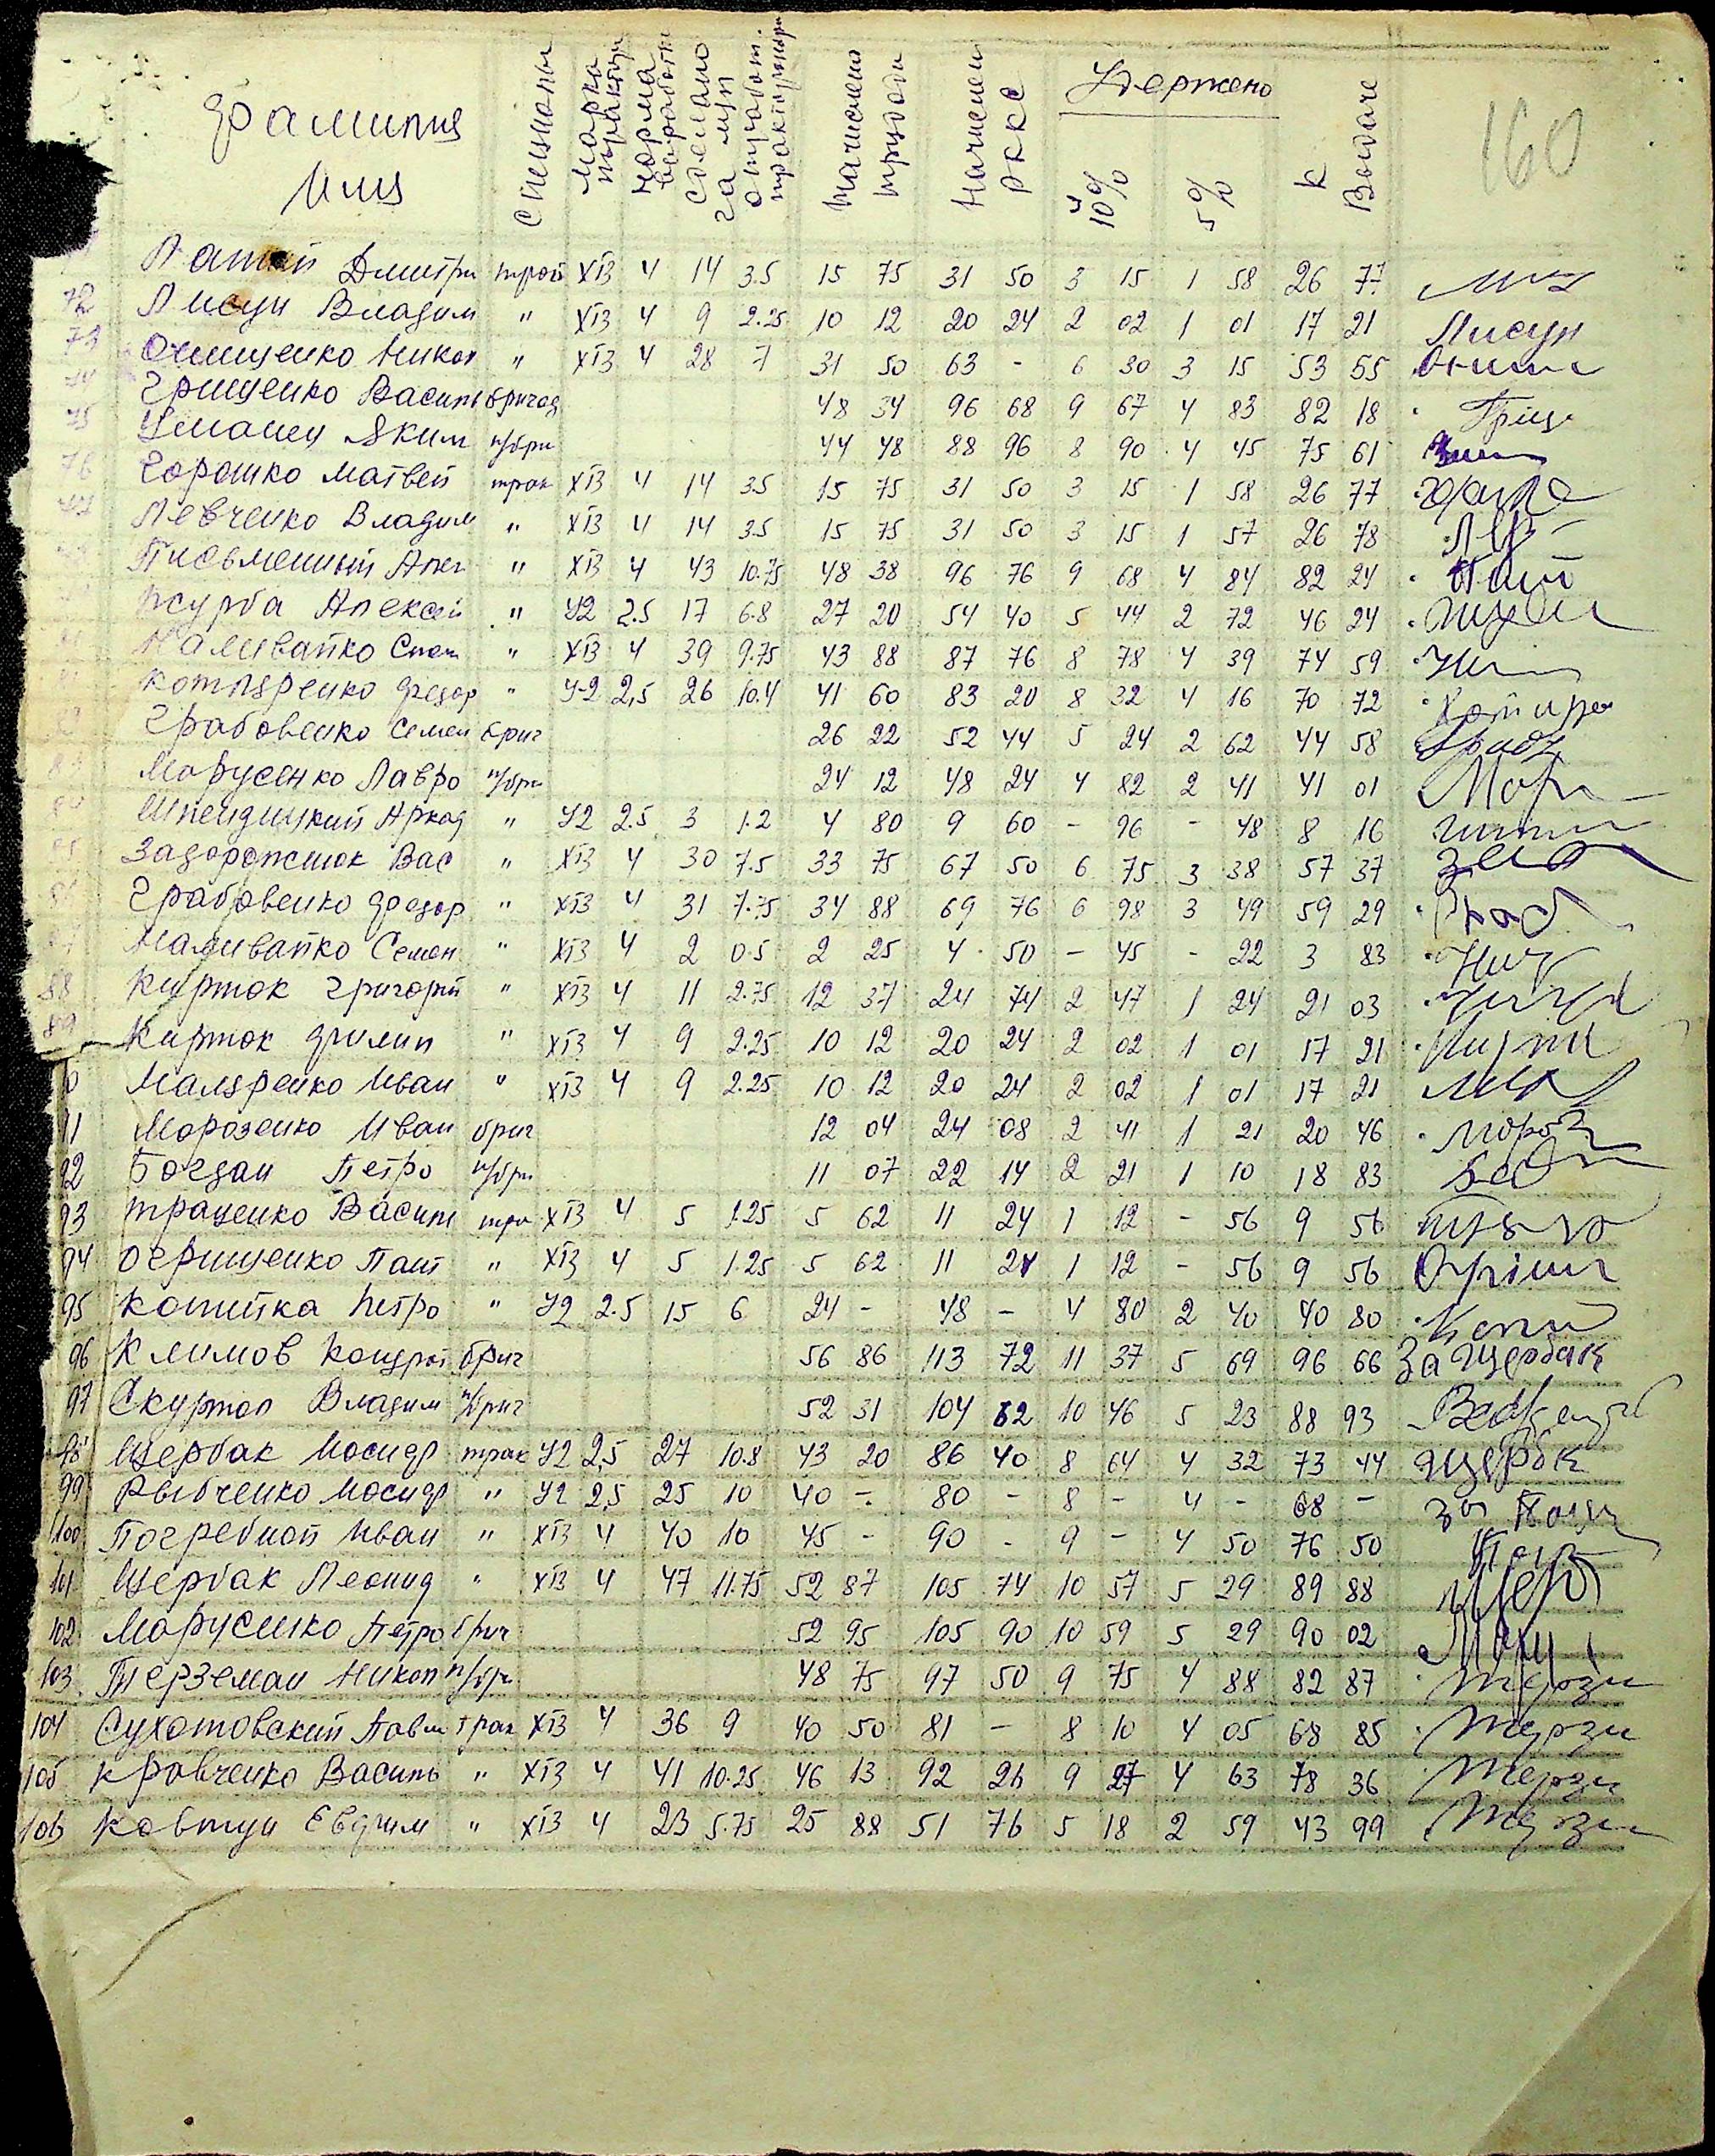 Фамилия Имя Специаль Марка трактор Норма выработ Сделано га муп отработ. тракторотр Начислено трудодн Начислен ркке Удержено 10% 5% к Выдаче 160
Дмитри трай ХТЗ 4 14 3.5 15 75 31 50 3 15 1 58 26 77
72 Лисун Владим " ХТЗ 4 9 2.25 10 12 20 24 2 02 1 01 17 21 Лисун
73 Онищенко Никол " ХТЗ 4 28 7 31 50 63 - 6 30 3 15 53 55
74 Грищенко Василь бригад 48 34 96 68 9 67 4 83 82 18 Грищ
75 Уманец Яким п/бри 44 48 88 96 8 90 4 45 75 61
76 Горошко Матвей трак ХТЗ 4 14 3.5 15 75 31 50 3 15 1 58 26 77
77 Левченко Владим " ХТЗ 4 14 3.5 15 75 31 50 3 15 1 57 26 78 Лев
Письменный Алек " ХТЗ 4 43 10.75 48 38 96 76 9 68 4 84 82 24
Журба Алексей " У2 2.5 17 6.8 27 20 54 40 5 44 2 72 46 24
Наливайко Степ " ХТЗ 4 39 9.75 43 88 87 76 8 78 4 39 74 59
Котляренко Федор " У-2 2,5 26 10.4 41 60 83 20 8 32 4 16 70 72
Грабовенко Семен бриг 26 22 52 44 5 24 2 62 44 58
Марусенко Лавро п/бри 24 12 48 24 4 82 2 41 41 01 Мар
84 Шпендицкий Аркад " У2 2.5 3 1.2 4 80 9 60 - 96 - 48 8 16
85 Задорожнюк Вас " ХТЗ 4 30 7.5 33 75 67 50 6 75 3 38 57 37
86 Грабовенко Федор " ХТЗ 4 31 7.75 34 88 69 76 6 98 3 49 59 29
Наливайко Семен " ХТЗ 4 2 0.5 2 25 4 50 - 45 - 22 3 83
88 Кирток Григорий " ХТЗ 4 11 2.75 12 37 24 74 2 47 1 24 21 03
89 Кирток Филип " ХТЗ 4 9 2.25 10 12 20 24 2 02 1 01 17 21
0 Маляренко Иван " ХТЗ 4 9 2.25 10 12 20 24 2 02 1 01 17 21
91 Морозенко Иван бриг 12 04 24 08 2 41 1 21 20 46 Мороз
92 Богдан Петро п/бри 11 07 22 14 2 21 1 10 18 83
93 Траценко Василь тра ХТЗ 4 5 1.25 5 62 11 24 1 12 - 56 9 56
94 Огрищенко Пант " ХТЗ 4 5 1.25 5 62 11 24 1 12 - 56 9 56 Огріщ
95 Копитка Петро " У2 2.5 15 6 24 - 48 - 4 80 2 40 40 80 Копи
96 Климов Кондрат бриг 56 86 113 72 11 37 5 69 96 66 За Щербак
97 Скуртол Владим п/бриг 52 31 104 62 10 46 5 23 88 93
98 Щербак Иосиф трак У2 2,5 27 10.8 43 20 86 40 8 64 4 32 73 44 Щербак
99 Рыбченко Иосиф " У2 2,5 25 10 40 - 80 - 8 - 4 - 68 -
100 Погребной Иван " ХТЗ 4 40 10 45 - 90 - 9 - 4 50 76 50
101 Щербак Леонид " ХТЗ 4 47 11.75 52 87 105 74 10 57 5 29 89 88 Щерб
102 Марусенко Петро бриг 52 95 105 90 10 59 5 29 90 02
103 Терземан Никол п/бри 48 75 97 50 9 75 4 88 82 87 Терзи
104 Сухотовский Павл трак ХТЗ 4 36 9 40 50 81 - 8 10 4 05 68 85 Терзи
105 Кравченко Василь " ХТЗ 4 41 10.25 46 13 92 26 9 27 4 63 78 36 Терзи
106 Ковтун Евдким " ХТЗ 4 23 5.75 25 88 51 76 5 18 2 59 43 99 Терзи